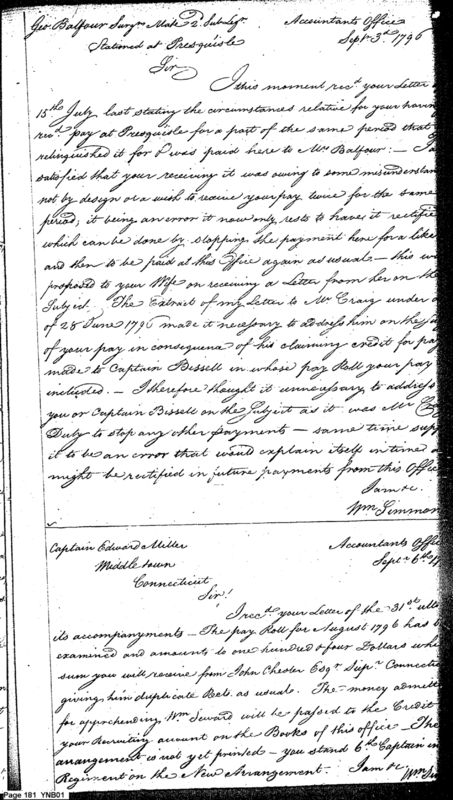 Geo. Balfour Surgns. Mate 2d. Sub Legn. Accountants Office
Stationed at Presquisle Septr. 3d. 1796
Sir,
I this moment recd. your Letter
15th. July last stating the circumstances relative for your having
recd. pay at Presquisle for a part of the same period that
relinquished it for & was paid here to Mrs. Balfour:— I a
satisfied that your receiving it was owing to some misunderstan
not by design or a wish to receive your pay twice for the same
period; it being an error it now only rests to have it rectified
which can be done by stopping the payment here for a like
and then to be paid at this Office again as usual.— this w
proposed to your Wife on receiving a Letter from her on the
Subject. The Extract of my Letter to Mr. Craig under
of 28 June 1796 made it necessary to address him on the su
of your pay in consequence of his claiming credit for pay
made to Captain Bissell in whose pay Roll your pay
included.— I therefore thought it unnecessary to address
you or Captain Bissell on the Subject as it was Mr. C
Duty to stop any other payments — same time supp
it to be an error that would explain itself in time
might be rectified in future payments from this Office
I am &c.
Wm. Simmon
Captain Edward Miller Accountants Offic
Middletown Septr. 6th. 17
Connecticut
Sir!
I recd. your Letter of the 31st. ulto
its accompanyments — The pay Roll for August 1796 has b
examined and amounts to one hundred & four Dollars whi
sum you will receive from John Chester Esqr. Supr. Connectic
giving him duplicate Rects. as usual. The money admitt
for apprehending Wm. Seward will be passed to the Credit
your Recruiting account on the Books of this office — The
arrangement is not yet printed — you stand 6th. Captain in
Regiment on the New Arrangement. I am &c. Wm. Sim
Page 181 YNB01